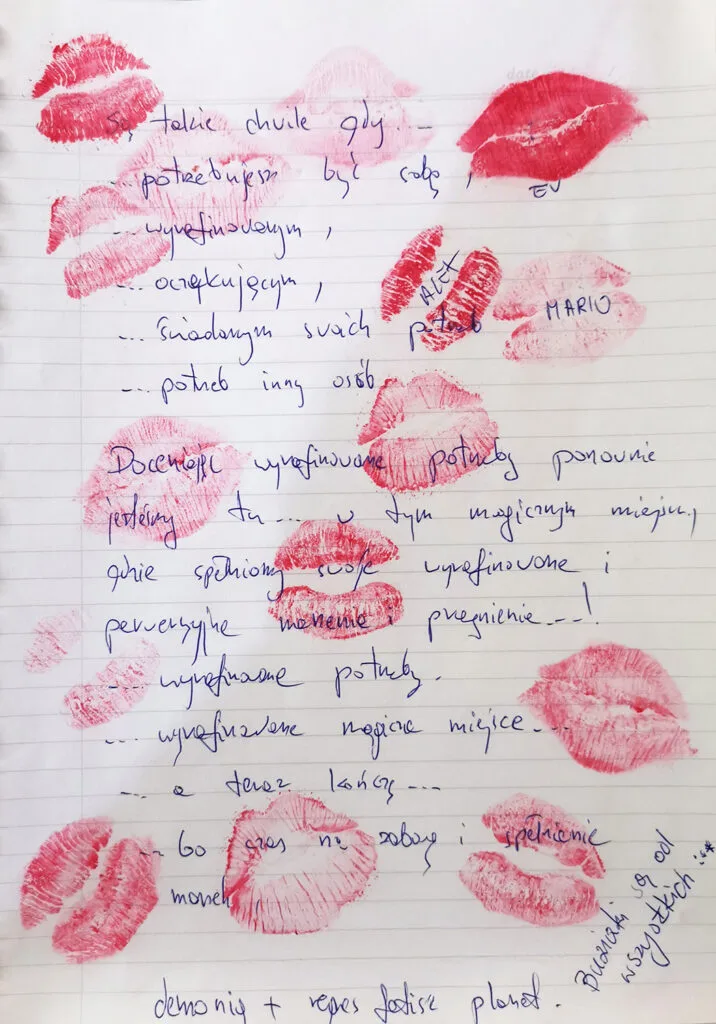 Są takie chwile gdy...
... potrzebujesz być sobą,
EV
... wyrafinowanym,
... oczekującym,
ALEX
MARIO
... świadomym swoich potrzeb
... potrzeb inny osób
Doceniając wyrafinowane potrzeby ponownie
jesteśmy tu... w tym magicznym miejscu,
gdzie spełniamy swoje wyrafinowane i
perwersyjne marzenia i pragnienie...!
... wyrafinowane potrzeby.
... wyrafinowane magiczne miejsce...
... a teraz kończę...
... bo czas na zabawę i spełnienie
marzeń
Buziaki są od
wszystkich
demonia + fetisz planet.